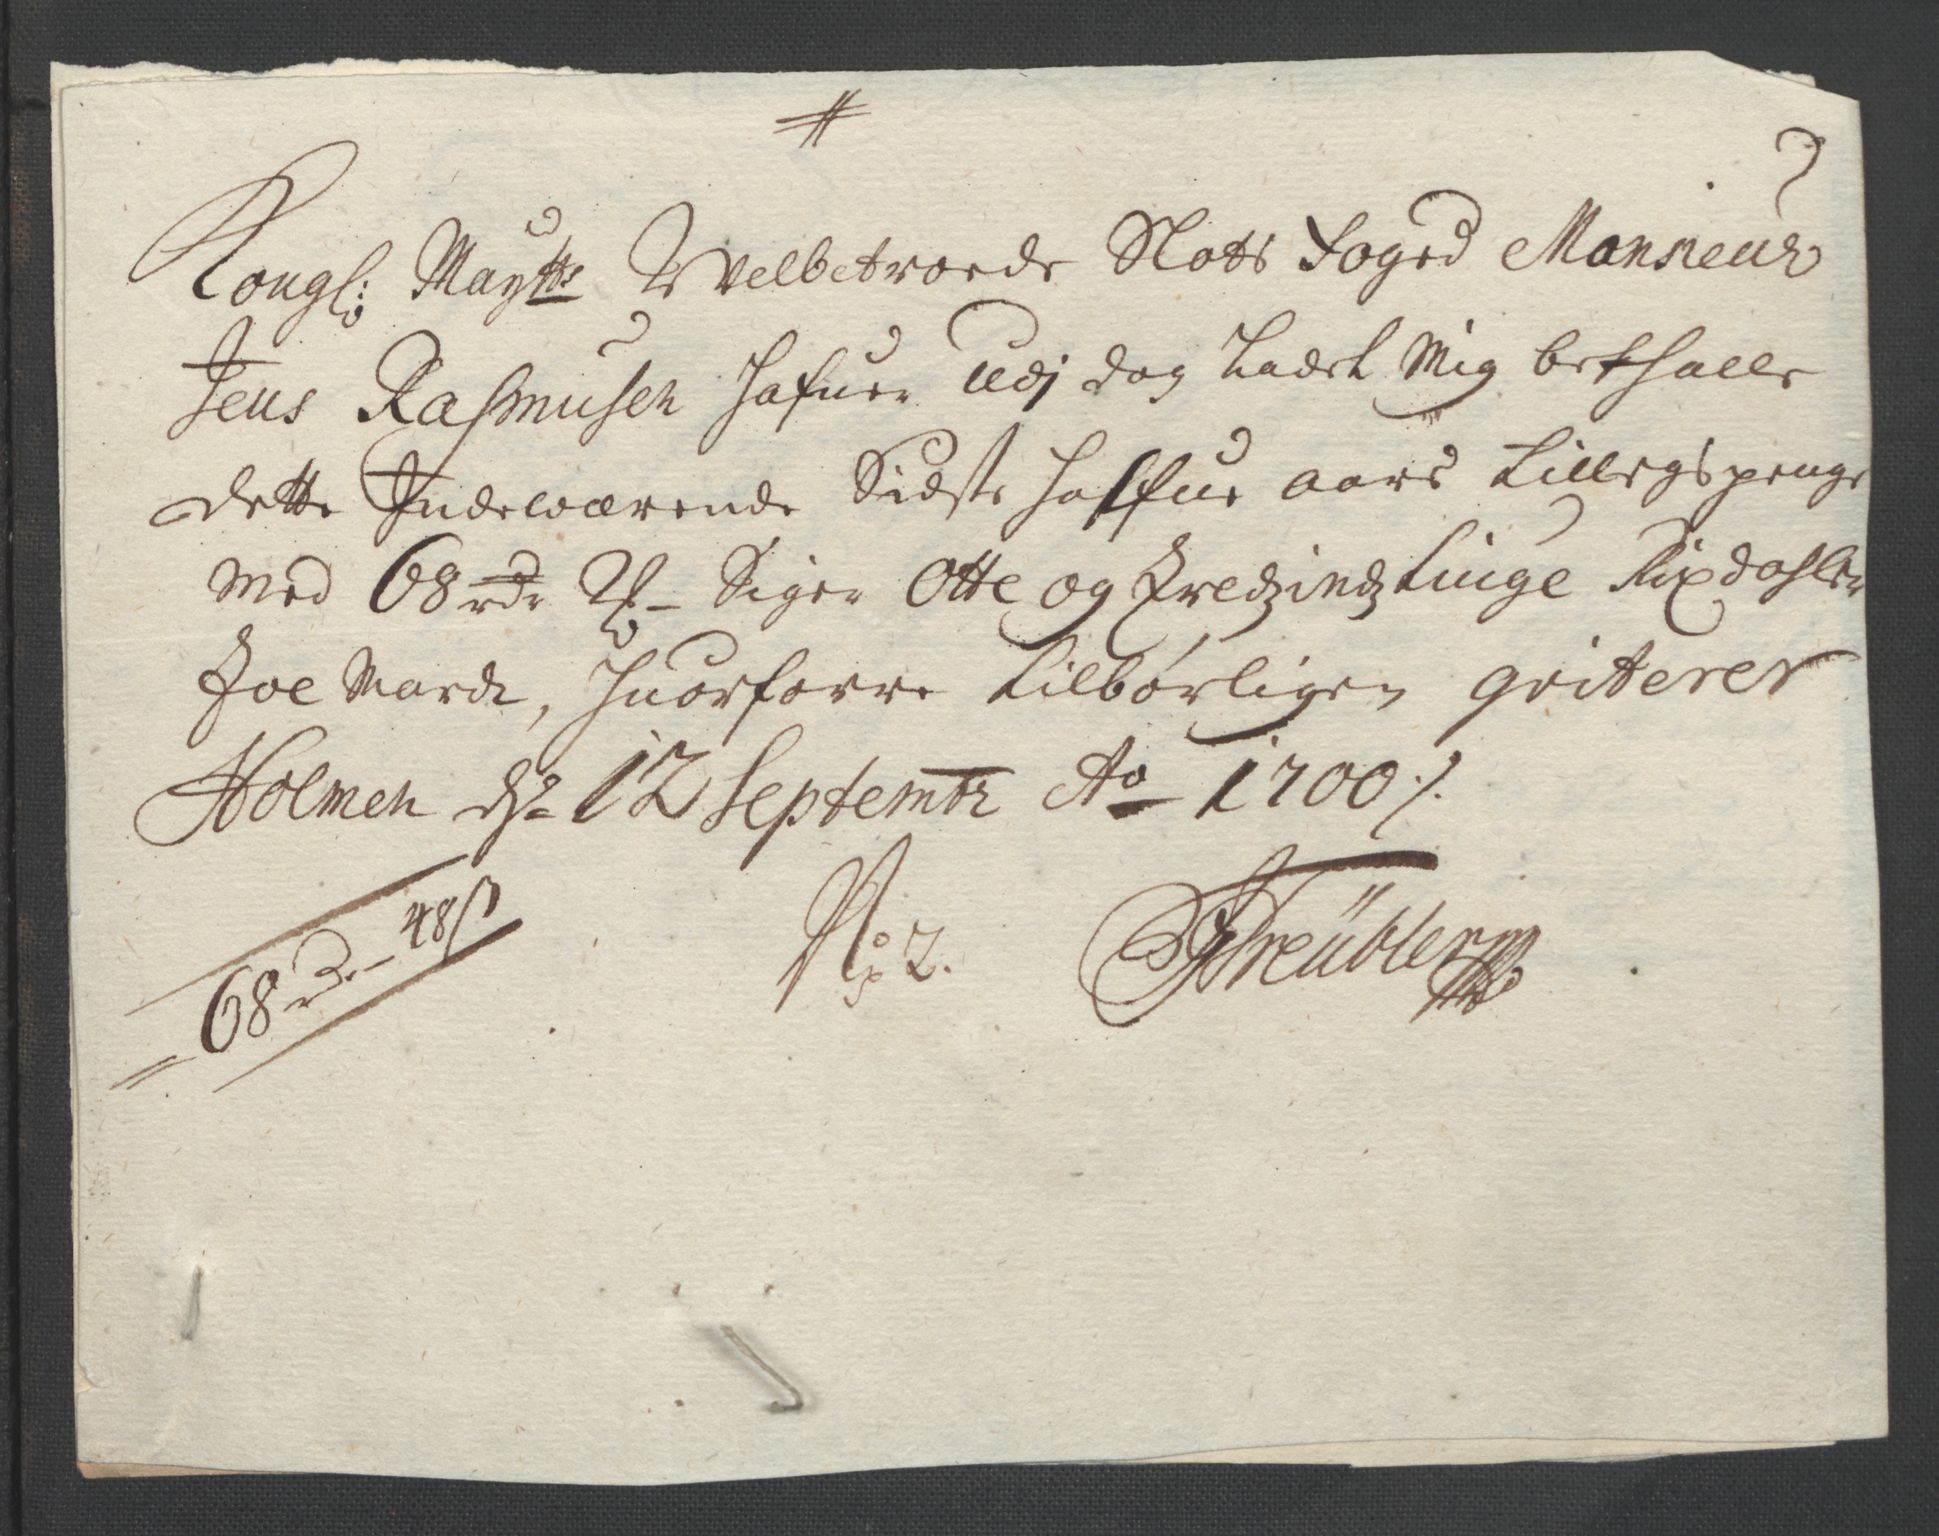 #
Kongl: Maytts Welbetroede Slots Foged Monsieur
Jens Rasmusen hafuer Udj dag Ladet Mig bethalle
dette Indewærende Sidste halfue aars Tillegspenge
Med 68 rdr 2 Siger Otte og Tredzindztiuge Rixdahler
Toe Marck, huorforre Tilbørligen qviterer
Holmen dn 12 Septembr Ao 1700 ./.
68 rd. - 48 ß
No 2.
Treübler